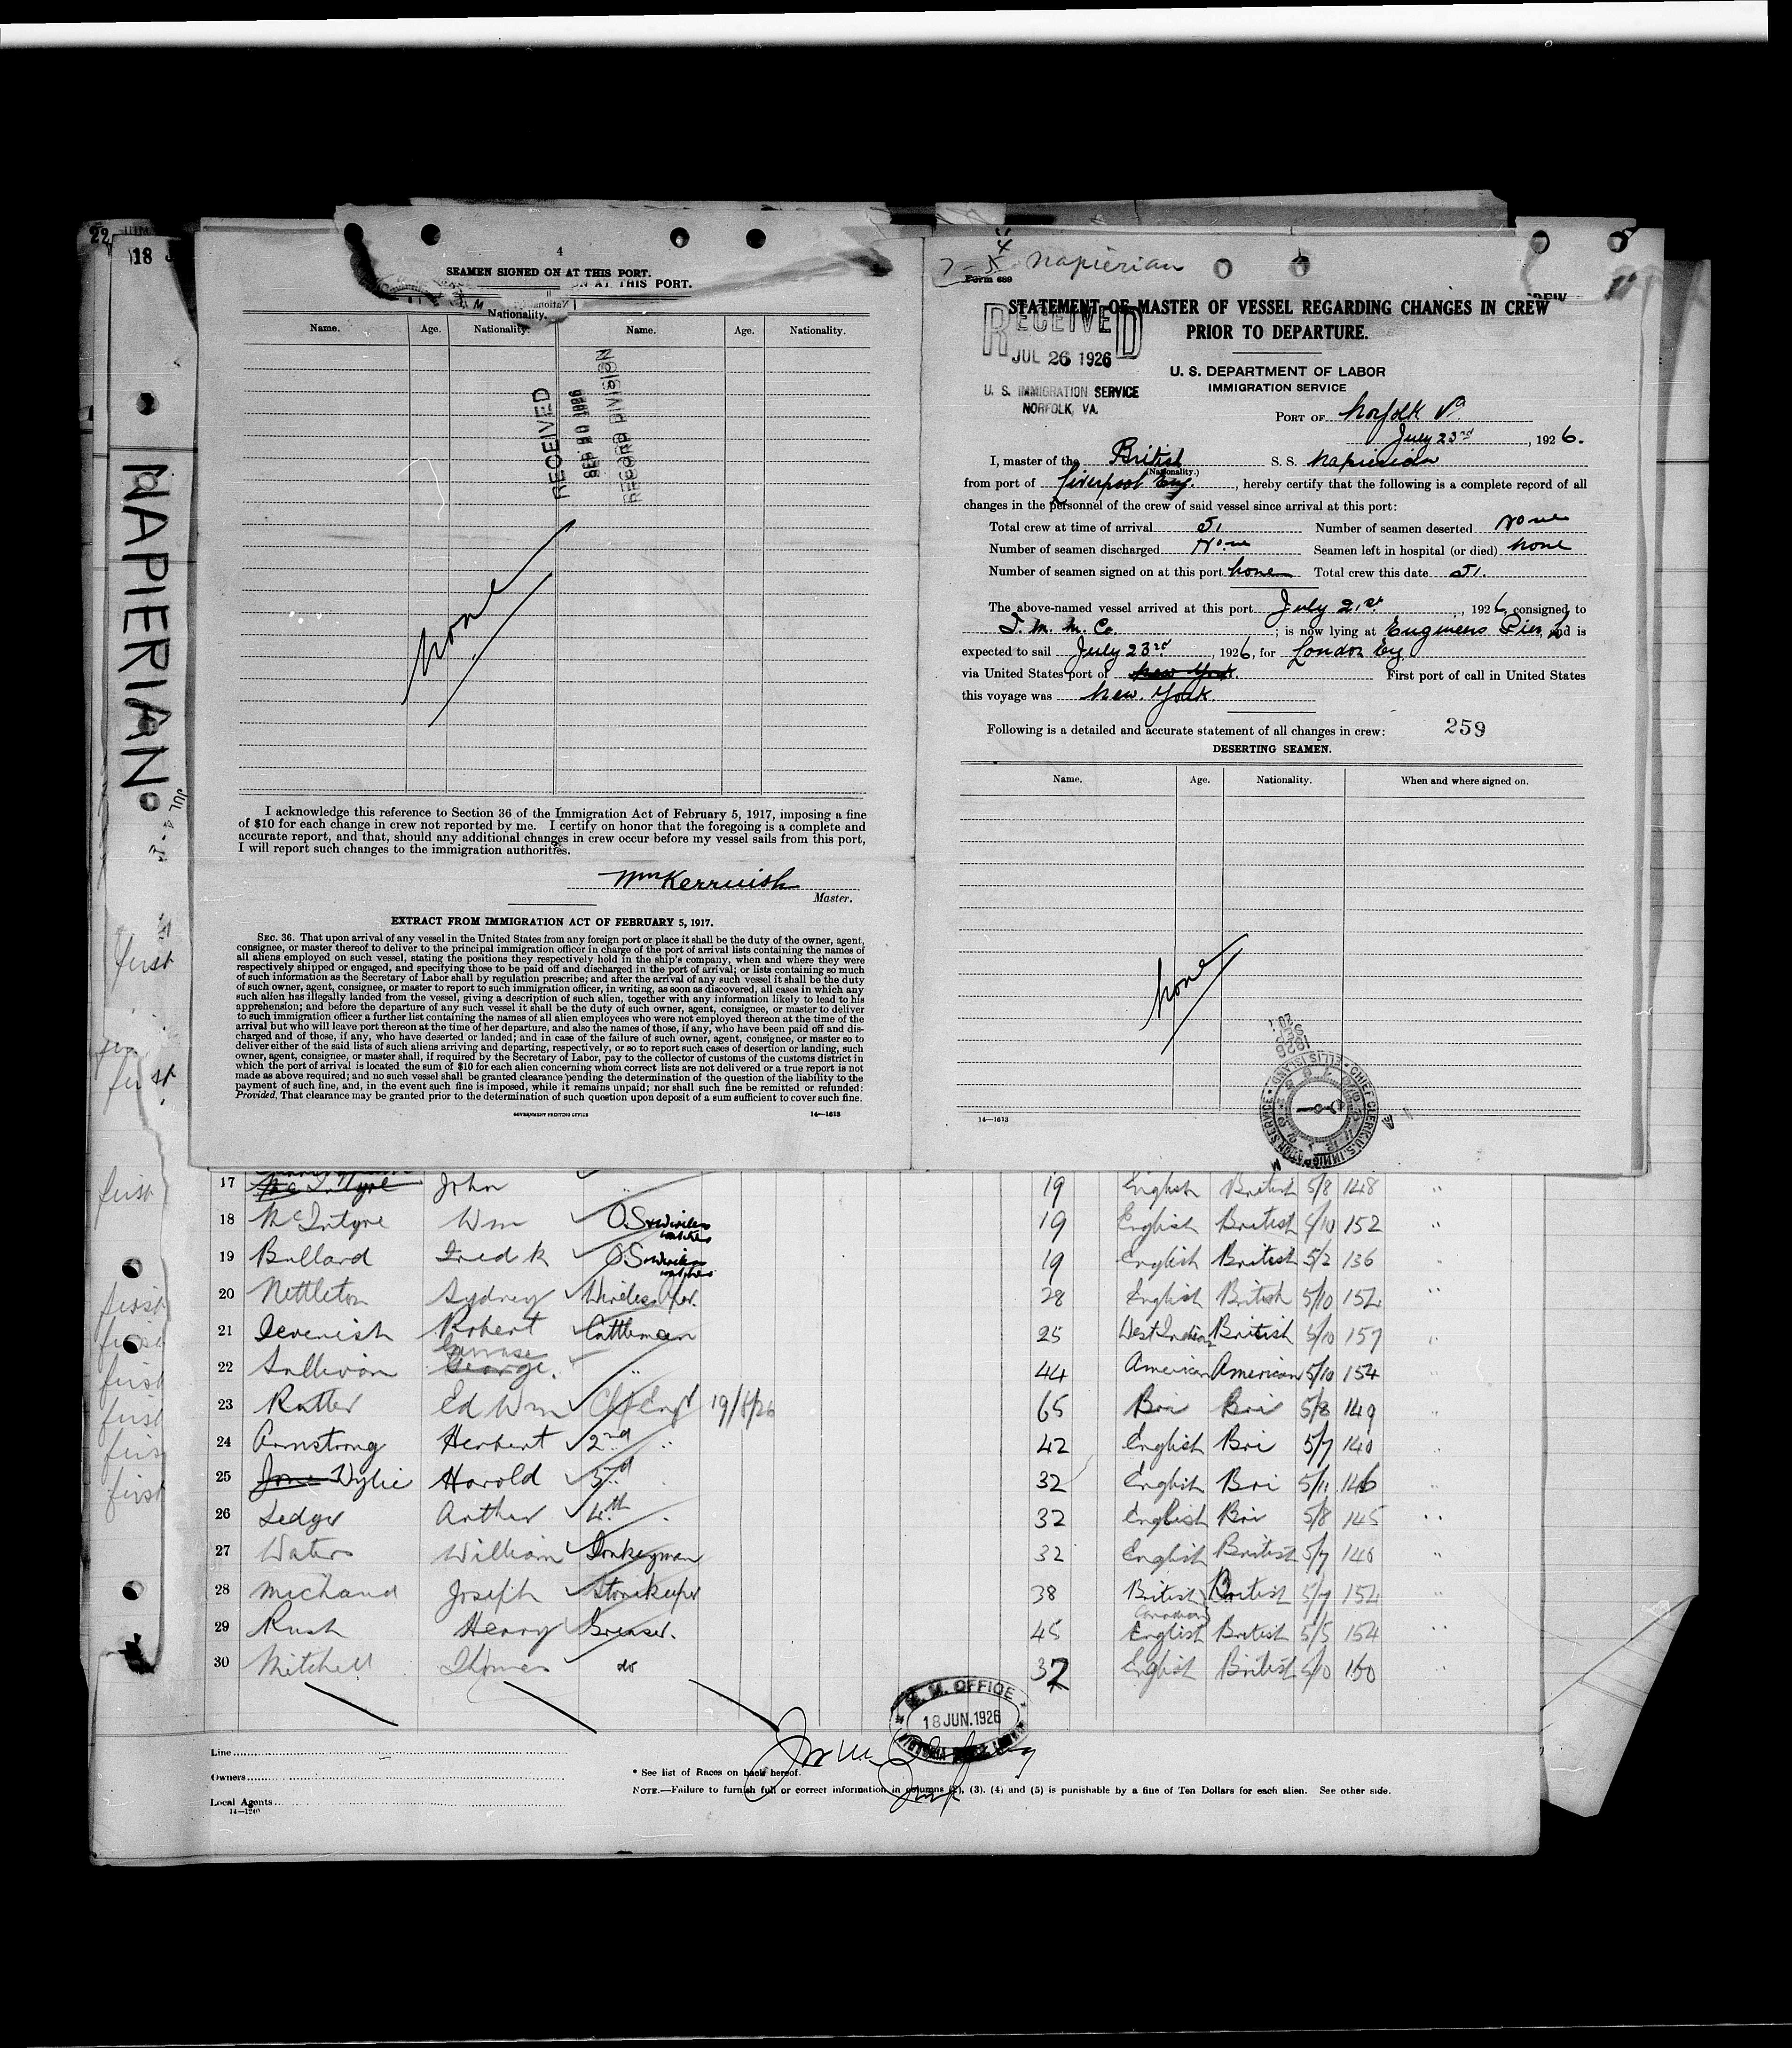 22
18
NAPIERIAN
4
SEAMEN SIGNED ON AT THIS PORT.
N AT THIS PORT.
Nationality.
Name. Age. Nationality. Name. Age. Nationality.
RECEIVED
SEP 1926
RECORD DIVISION
none
I acknowledge this reference to Section 36 of the Immigration Act of February 5, 1917, imposing a fine
of $10 for each change in crew not reported by me. I certify on honor that the foregoing is a complete and
accurate report, and that, should any additional changes in crew occur before my vessel sails from this port,
I will report such changes to the immigration authorities.
Wm Kerruish
Master.
EXTRACT FROM IMMIGRATION ACT OF FEBRUARY 5, 1917.
SEC. 36. That upon arrival of any vessel in the United States from any foreign port or place it shall be the duty of the owner, agent,
consignee, or master thereof to deliver to the principal immigration officer in charge of the port of arrival lists containing the names of
all aliens employed on such vessel, stating the positions they respectively hold in the ship's company, when and where they were
respectively shipped or engaged, and specifying those to be paid off and discharged in the port of arrival; or lists containing so much
of such information as the Secretary of Labor shall by regulation prescribe; and after the arrival of any such vessel it shall be the duty
of such owner, agent, consignee, or master to report to such immigration officer, in writing, as soon as discovered, all cases in which any
such alien has illegally landed from the vessel, giving a description of such alien, together with any information likely to lead to his
apprehension; and before the departure of any such vessel it shall be the duty of such owner, agent, consignee, or master to deliver
to such immigration officer a further list containing the names of all alien employees who were not employed thereon at the time of the
arrival but who will leave port thereon at the time of her departure, and also the names of those, if any, who have been paid off and dis-
charged and of those, if any, who have deserted or landed; and in case of the failure of such owner, agent, consignee, or master so to
deliver either of the said lists of such aliens arriving and departing, respectively, or so to report such cases of desertion or landing, such
owner, agent, consignee, or master shall, if required by the Secretary of Labor, pay to the collector of customs of the customs district in
which the port of arrival is located the sum of $10 for each alien concerning whom correct lists are not delivered or a true report is not
made as above required; and no such vessel shall be granted clearance pending the determination of the question of the liability to the
payment of such fine, and, in the event such fine is imposed, while it remains unpaid; nor shall such fine be remitted or refunded:
Provided, That clearance may be granted prior to the determination of such question upon deposit of a sum sufficient to cover such fine.
GOVERNMENT PRINTING OFFICE 14—1613
4
Napierian
Form 689
STATEMENT OF MASTER OF VESSEL REGARDING CHANGES IN CREW
PRIOR TO DEPARTURE.
RECEIVED
JUL 26 1926
U. S. IMMIGRATION SERVICE
NORFOLK, VA.
U. S. DEPARTMENT OF LABOR
IMMIGRATION SERVICE
PORT OF Norfolk Va
July 23rd, 1926.
I, master of the British S. S. Napierian
(Nationality.)
from port of Liverpool Eng., hereby certify that the following is a complete record of all
changes in the personnel of the crew of said vessel since arrival at this port:
Total crew at time of arrival 51 Number of seamen deserted None
Number of seamen discharged None Seamen left in hospital (or died) None
Number of seamen signed on at this port None Total crew this date 51.
The above-named vessel arrived at this port July 21st, 1926, consigned to
I. M. M. Co.; is now lying at Engineers Pier, and is
expected to sail July 23rd, 1926, for London Eng
via United States port of New York. First port of call in United States
this voyage was New York.
Following is a detailed and accurate statement of all changes in crew: 259
DESERTING SEAMEN.
Name. Age. Nationality. When and where signed on.
none
CHIEF CLERK U.S. IMMIGRATION SERVICE ELLIS ISLAND
14—1613
first
first
first
first
first
first
first
first
first
17 McIntyre John 19 English British 5/8 148 "
18 McIntyre Wm O.S. & wireless watcher 19 English British 5/10 152
19 Bullard Fredk O.S. & wireless watcher 19 English British 5/2 136
20 Nettleton Sydney Wireless Oper. 28 English British 5/10 152
21 Devenish Robert Cattleman 25 West Indian British 5/10 157
22 Sullivan George. " 44 American American 5/10 154
23 Rutter Ed Wm Chf Engr 19/6/26 65 Bri Bri 5/8 149
24 Armstrong Herbert 2nd " 42 English Bri 5/7 140
25 Jones Wylie Harold 3rd " 32 English Bri 5/11 146
26 Ledger Arther 4th " 32 English Bri 5/8 145
27 Waters William Donkeyman 32 English British 5/7 140
28 Michaud Joseph Storekeeper 38 British Canadian British 5/7 152
29 Rush Henry Greaser. 45 English British 5/5 154
30 Mitchell Thomas do 37 English British 5/10 160
M. M. OFFICE
18 JUN. 1926
Line
Owners
Local Agents
14—1240
* See list of Races on back hereof.
NOTE.—Failure to furnish full or correct information in columns (2), (3), (4) and (5) is punishable by a fine of Ten Dollars for each alien. See other side.